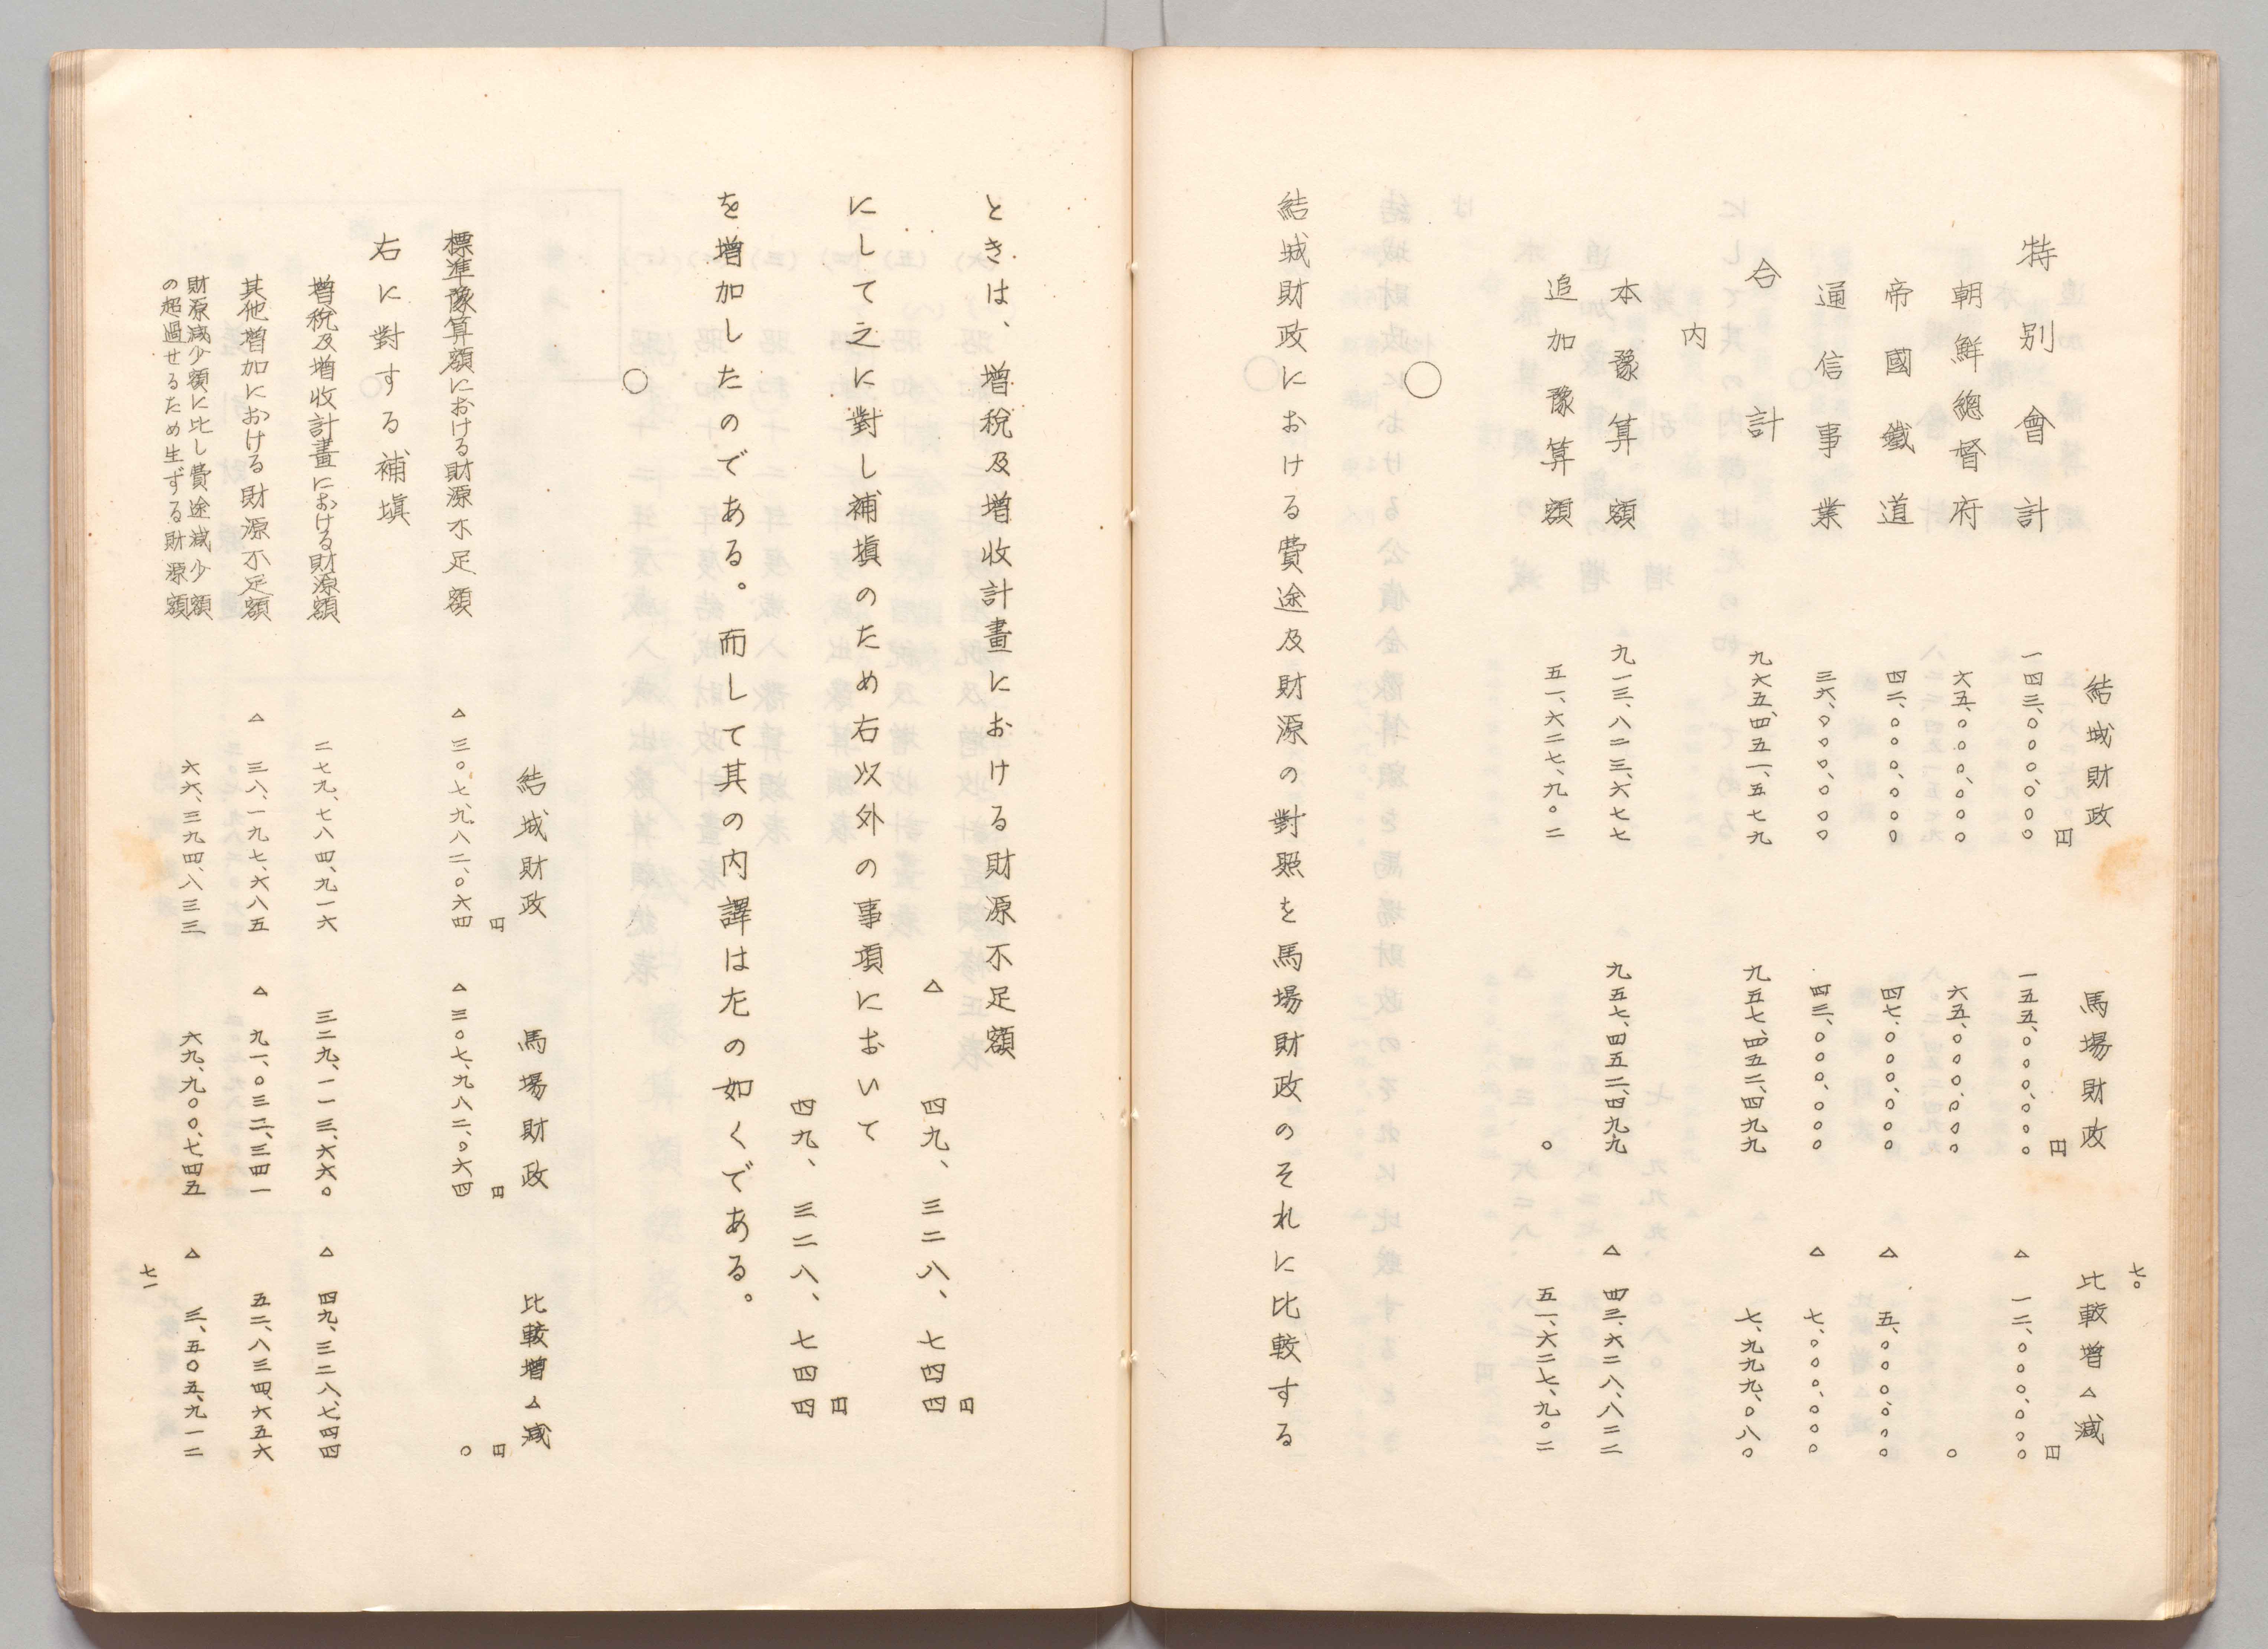 七〇
結城財政 馬場財政 比較增△減
円 円 円
特別會計 一四三、〇〇〇、〇〇〇 一五五、〇〇〇、〇〇〇 △一二、〇〇〇、〇〇〇
朝鮮總督府 六五、〇〇〇、〇〇〇 六五、〇〇〇、〇〇〇 〇
帝國鐵道 四二、〇〇〇、〇〇〇 四七、〇〇〇、〇〇〇 △五、〇〇〇、〇〇〇
通信事業 三六、〇〇〇、〇〇〇 四三、〇〇〇、〇〇〇 △七、〇〇〇、〇〇〇
合計 九六五、四五一、五七九 九五七、四五二、四九九 七、九九九、〇八〇
内
本豫算額 九一三、八二三、六七七 九五七、四五二、四九九 △四三、六二八、八二二
追加豫算額 五一、六二七、九〇二 〇 五一、六二七、九〇二
○
結城財政における費途及財源の對照を馬場財政のそれに比較する
ときは、增稅及增收計畫における財源不足額
△四九、三二八、七四四円
にして之に對し補塡のため右以外の事項において
四九、三二八、七四四円
を增加したのである。而して其の内譯は左の如くである。
○
結城財政 馬場財政 比較增△減
円 円 円
標準豫算額における財源不足額 △三〇七、九八二、〇六四 △三〇七、九八二、〇六四 〇
右に對する補塡
增稅及增收計畫における財源額 二七九、七八四、九一六 三二九、一一三、六六〇 △四九、三二八、七四四
其他增加における財源不足額 △三八、一九七、六八五 △九一、〇三二、三四一 五二、八三四、六五六
財源減少額に比し費途減少額
の超過せるため生ずる財源額 六六、三九四、八三三 六九、九〇〇、七四五 △三、五〇五、九一二
七一